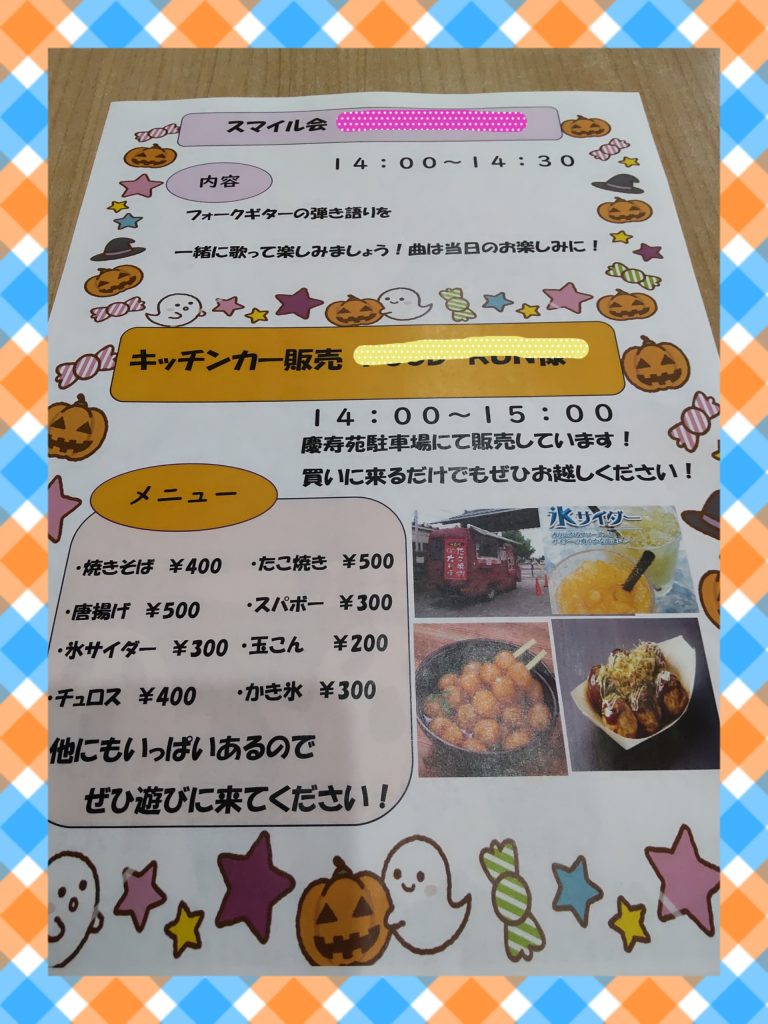 スマイル会
14:00～14:30
内容
フォークギターの弾き語りを
一緒に歌って楽しみましょう！曲は当日のお楽しみに！
キッチンカー販売
14:00～15:00
慶寿苑駐車場にて販売しています！
買いに来るだけでもぜひお越しください！
メニュー
・焼きそば ￥400 ・たこ焼き ￥500
・唐揚げ ￥500 ・スパボー ￥300
・氷サイダー ￥300 ・玉こん ￥200
・チュロス ￥400 ・かき氷 ￥300
他にもいっぱいあるので
ぜひ遊びに来てください！
氷サイダー